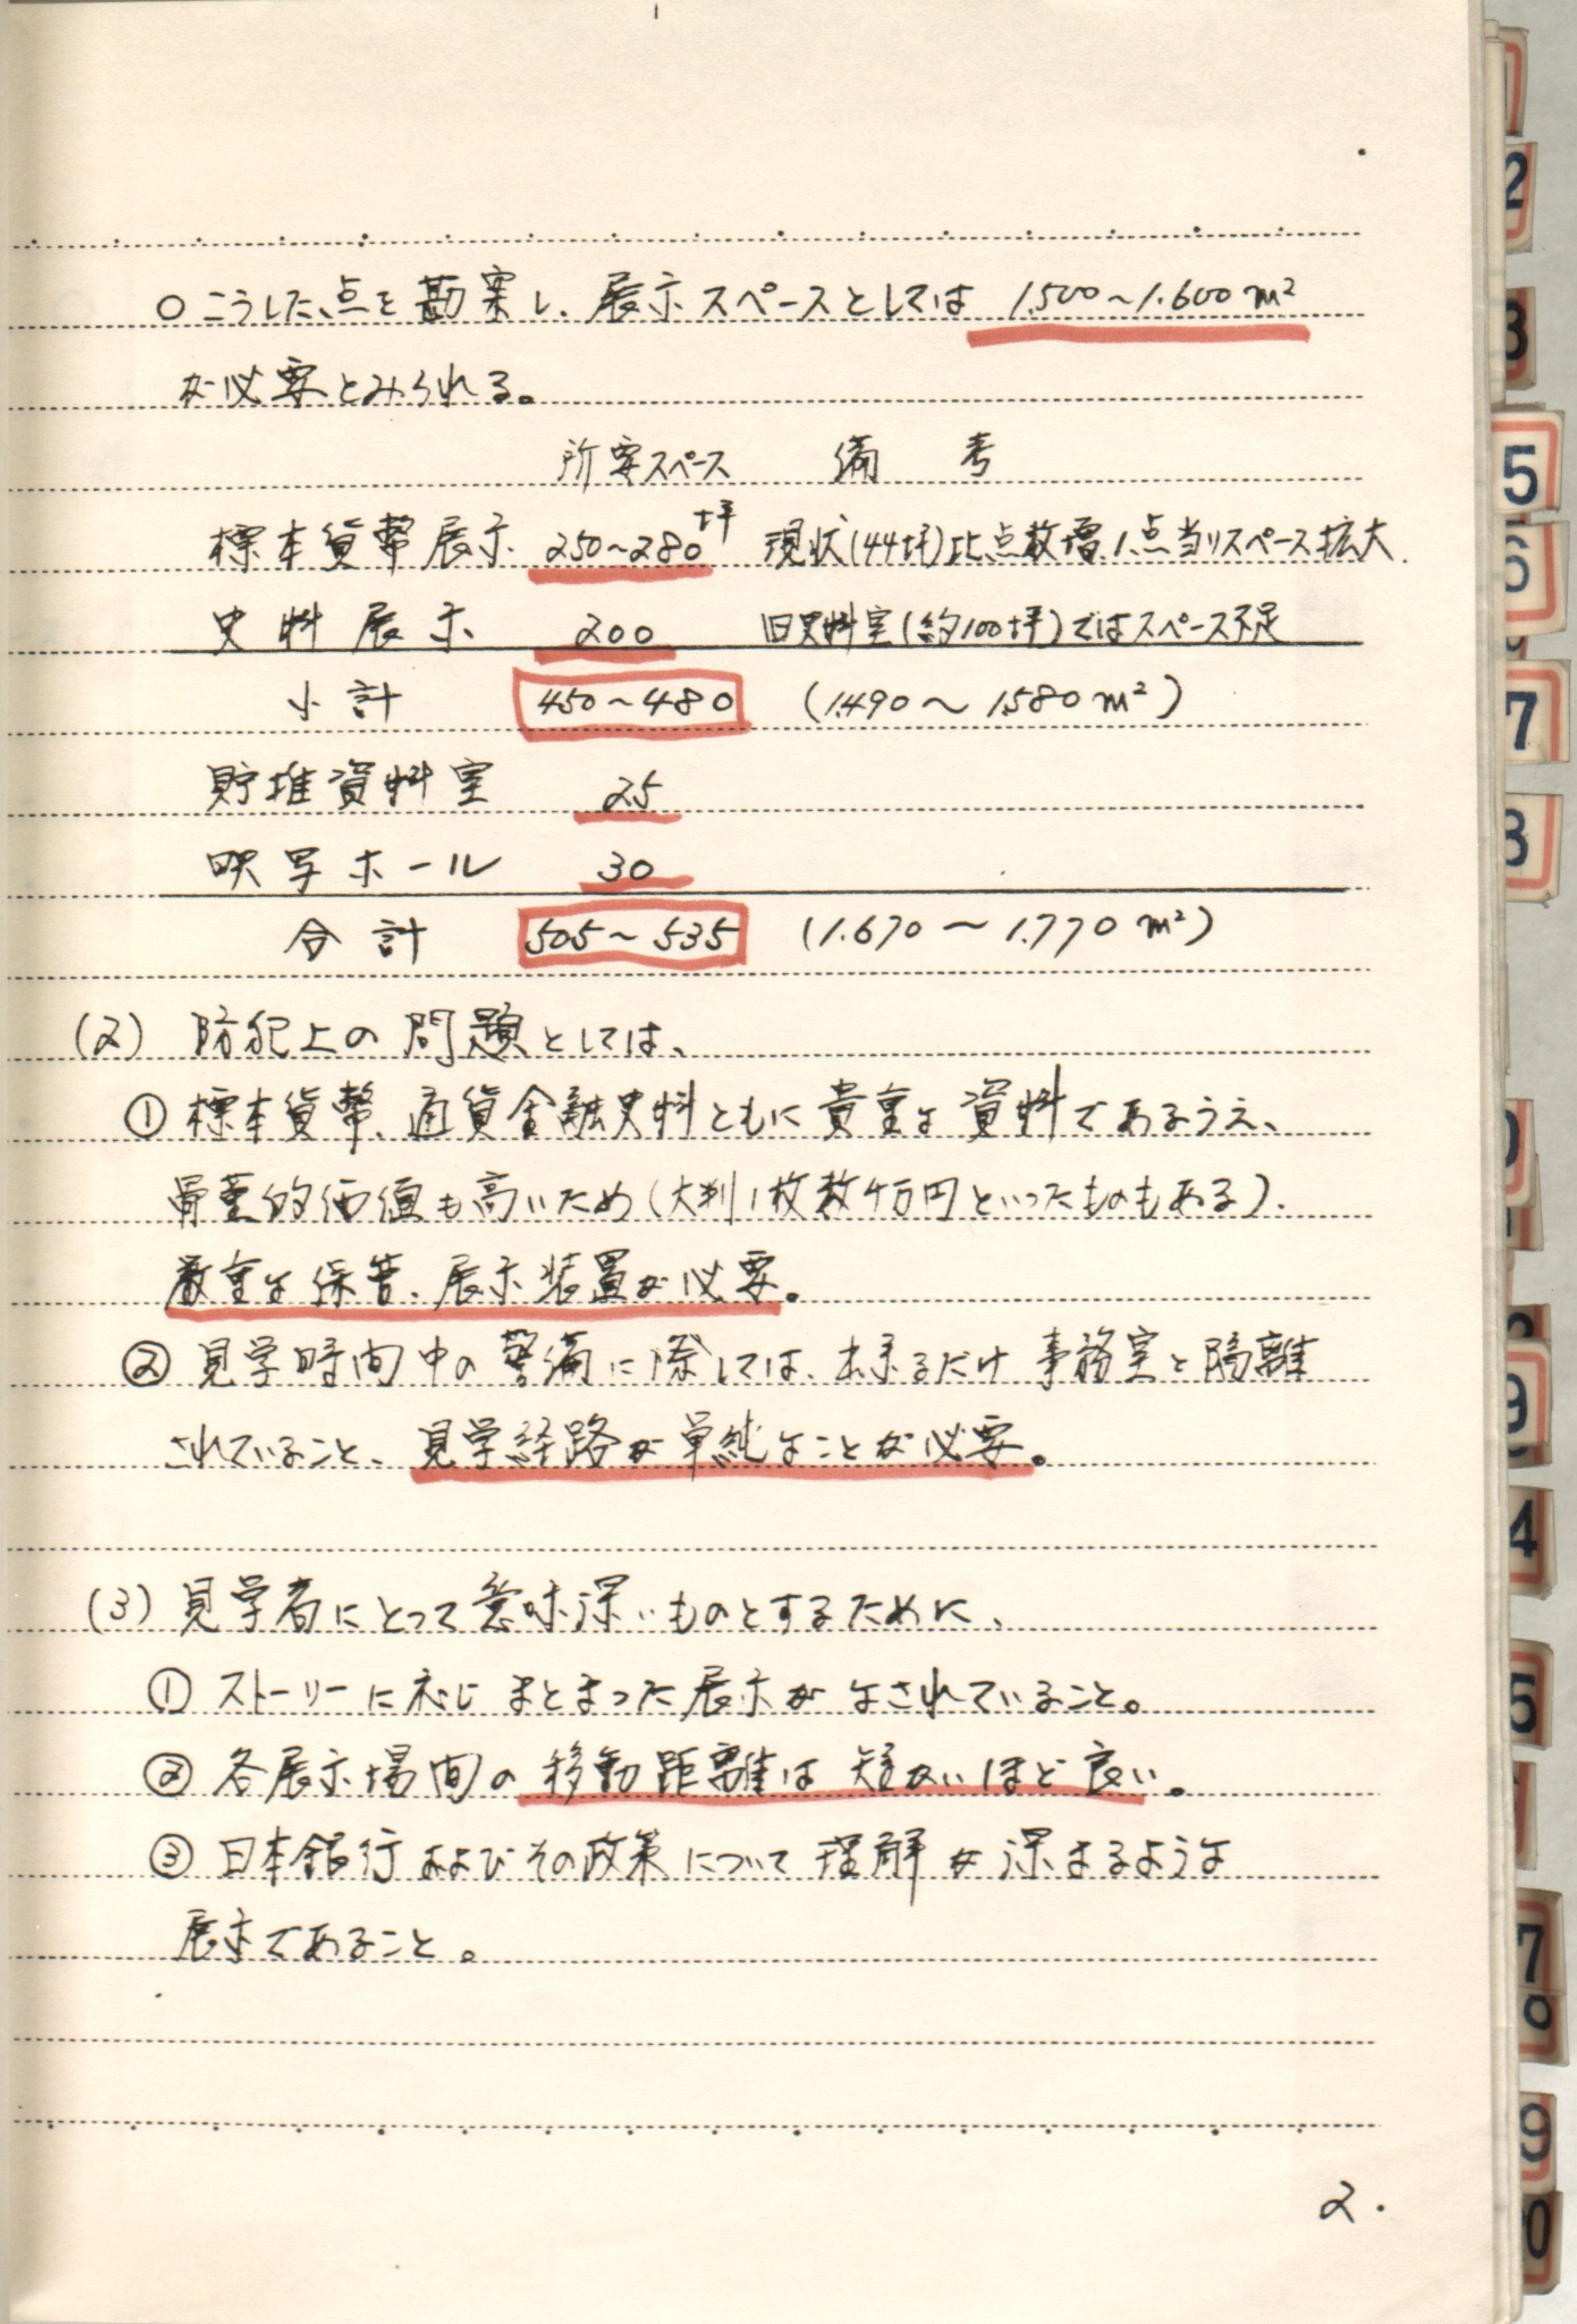 ○こうした点を勘案し、展示スペースとしては 1,500～1,600m²
が必要とみられる。
所要スペース 備考
標本貨幣展示 250～280坪 現状(44坪)比点数増、1点当りスペース拡大.
史料展示 200 旧史料室(約100坪)ではスペース不足
小計 450～480 (1,490～1,580m²)
貯堆資料室 25
映写ホール 30
合計 505～535 (1.670～1.770m²)
(2) 防犯上の問題としては、
① 標本貨幣、通貨金融史料ともに貴重な資料であるうえ、
骨董的価値も高いため(大判1枚数千万円といったものもある).
厳重な保管、展示装置が必要。
② 見学時間中の警備に際しては、出来るだけ事務室と隔離
されていること、見学経路が単純なことが必要。
(3) 見学者にとって意味深いものとするために、
① ストーリーに応じまとまった展示がなされていること。
② 各展示場間の移動距離は短かいほど良い。
③ 日本銀行およびその政策について理解が深まるような
展示であること。
2.
2
3
5
6
7
8
9
4
5
7
9
0